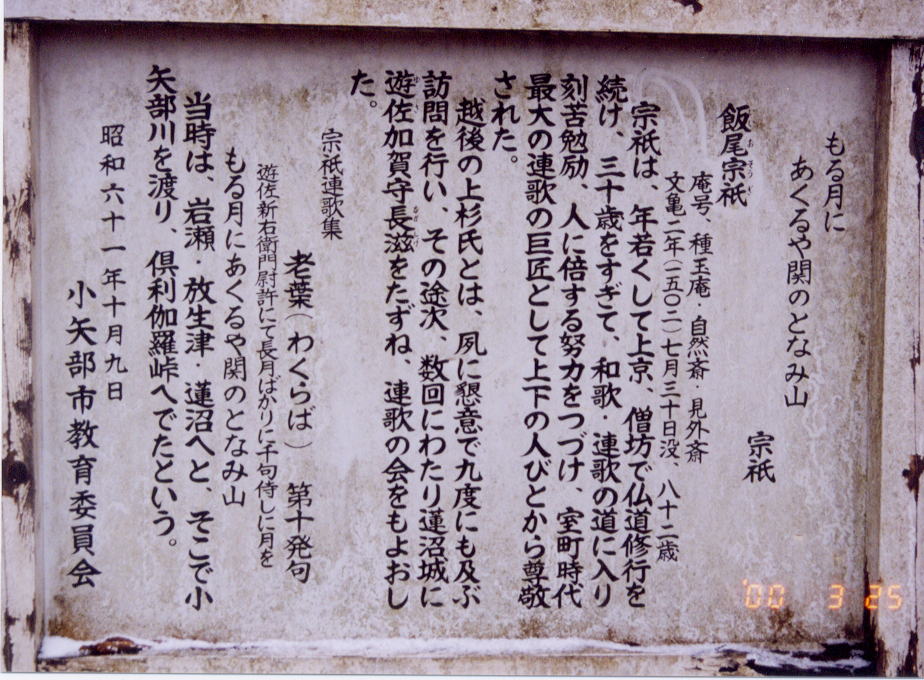 もる月に
あくるや関のとなみ山
宗祇
飯尾宗祇
庵号、種玉庵・自然斎・見外斎
文亀二年（一五〇二）七月三十日没、八十二歳
宗祇は、年若くして上京、僧坊で仏道修行を
続け、三十歳をすぎて、和歌・連歌の道に入り
刻苦勉励、人に倍する努力をつづけ、室町時代
最大の連歌の巨匠として上下の人びとから尊敬
された。
越後の上杉氏とは、夙に懇意で九度にも及ぶ
訪問を行い、その途次、数回にわたり蓮沼城に
遊佐加賀守長滋をたずね、連歌の会をもよおし
た。
宗祇連歌集
老葉（わくらば） 第十発句
遊佐新右衛門尉許にて長月ばかりに千句侍しに月を
もる月にあくるや関のとなみ山
当時は、岩瀬・放生津・蓮沼へと、そこで小
矢部川を渡り、倶利伽羅峠へでたという。
昭和六十一年十月九日
小矢部市教育委員会
'00 3 25